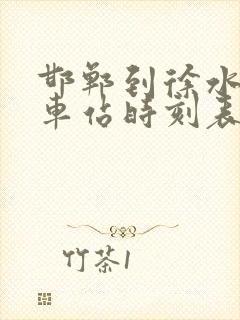 邯郸到徐水
车站时刻表
竹茶1